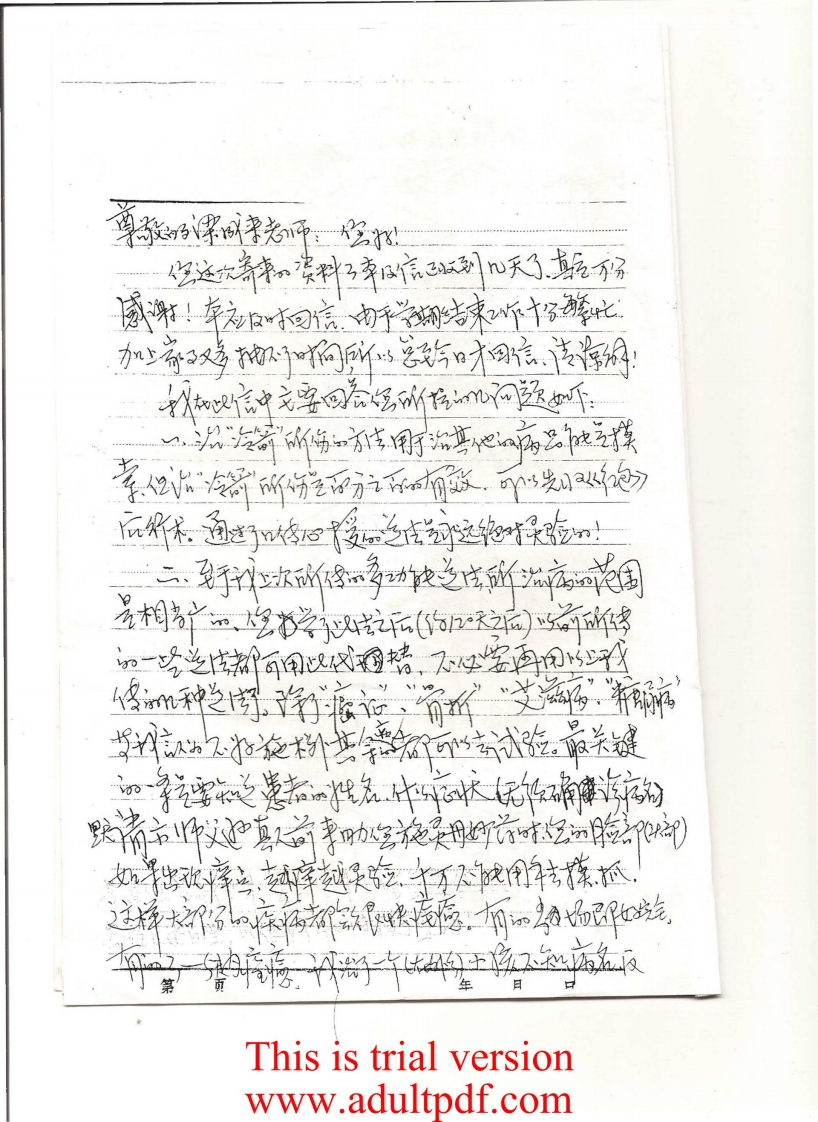 尊敬的梁老师：您好！
您这次寄来的资料及信已收到几天了，真是万分
感谢！本应及时回信，由于学期结束工作十分繁忙
加上家又多抽不了时间所以总至今日才回信，请谅解！
我在此信中主要回答您所提的几问题如下：
一、治“冷箭”所伤的方法用于治其他的病只能是摸
索，但治“冷箭”所伤是百分之百的有效，可以先收《红包》
后行术。通过口传心授的道法是永远绝对灵验的！
二、至于我上次所传的多功能道法所治病的范围
是相当广的，您学了此法之后（你120天之后）以前所传
的一些道法都可用此代替，不必要再用以上我
传的几种道法。除了“癌症”、“骨折”“艾滋病”、
等我认为不好施术外其余都可以去试验。最关键
的一条是要知道患者的姓名，什么症状（无须确诊病名）
默请 师父 真人前来助您施灵丹妙药时，您的脸部
如果出现痒点，越痒越灵验，千万不能用手去摸、抓，
这样大部份的疾病都会很快痊愈。有的当场即好完，
有的 痊愈，我治了一个 小孩不知病名
第 页 年 月 日
This is trial version
www.adultpdf.com